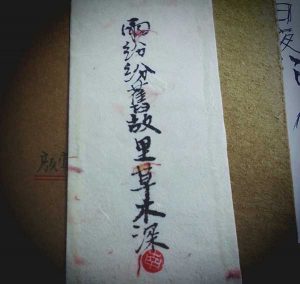 雨纷纷舊故里草木深